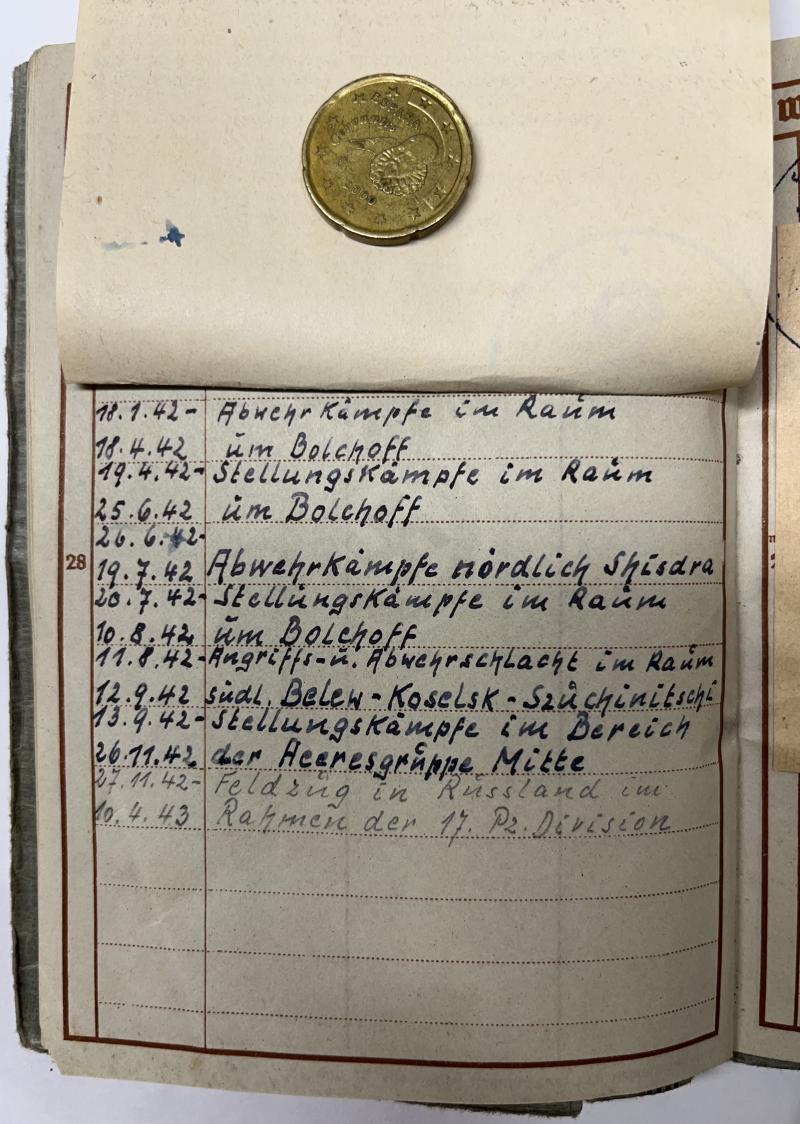 ESPAÑA
Cervantes
2000
18.1.42- Abwehrkämpfe im Raum
18.4.42 um Bolchoff
19.4.42- Stellungskämpfe im Raum
25.6.42 um Bolchoff
26.6.42-
28
19.7.42 Abwehrkämpfe nördlich Shisdra
20.7.42- Stellungskämpfe im Raum
10.8.42 um Bolchoff
11.8.42- Angriffs-u. Abwehrschlacht im Raum
12.9.42 südl. Belew-Koselsk-Szuchinitschi
13.9.42- Stellungskämpfe im Bereich
26.11.42 der Heeresgruppe Mitte
27.11.42- Feldzug in Russland im
10.4.43 Rahmen der 17. Pz. Division